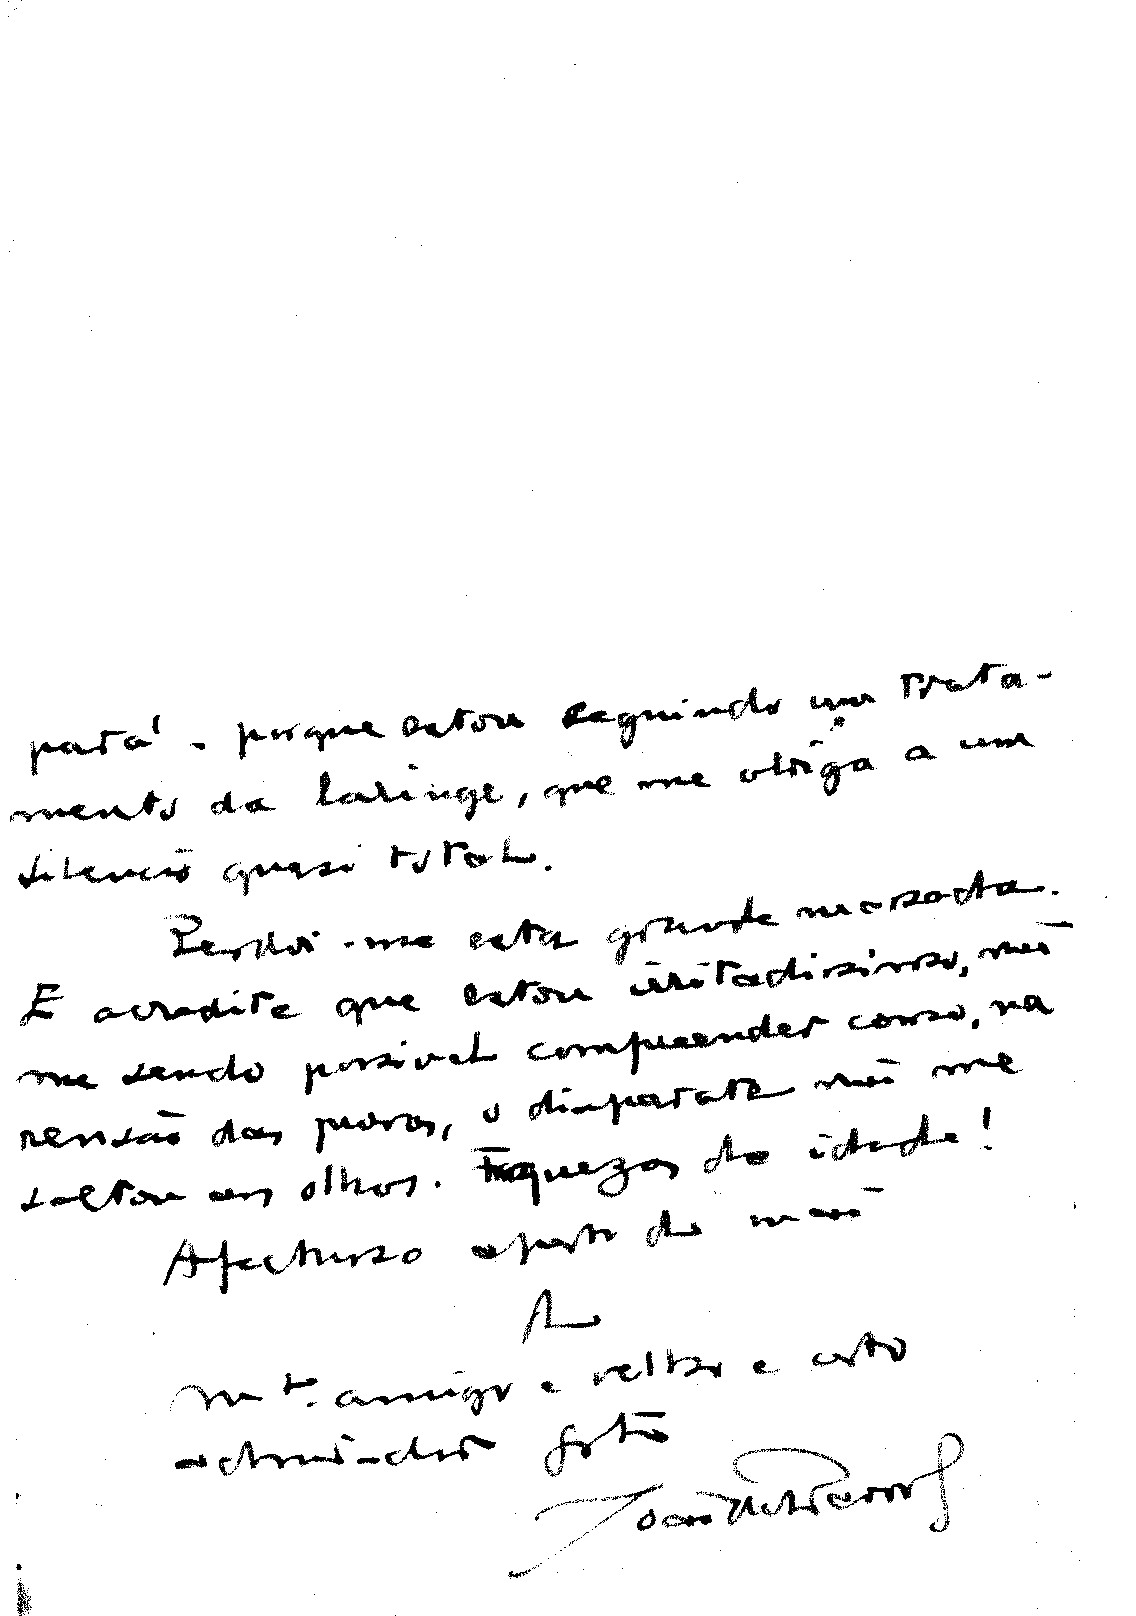 pará - porque estou seguindo um trata-
mento da laringe, que me obriga a um
silencio quasi total.
Perdoi-me esta grande massada.
E acredite que estou irritadissimo, não
me sendo possivel compreender como, na
revisão das provas, o disparate não me
saltou aos olhos. Fraquezas da idade!
Afectuoso aperto de mão
Do
Mto. amigo e velho e certo
admirador grato
João de Barros